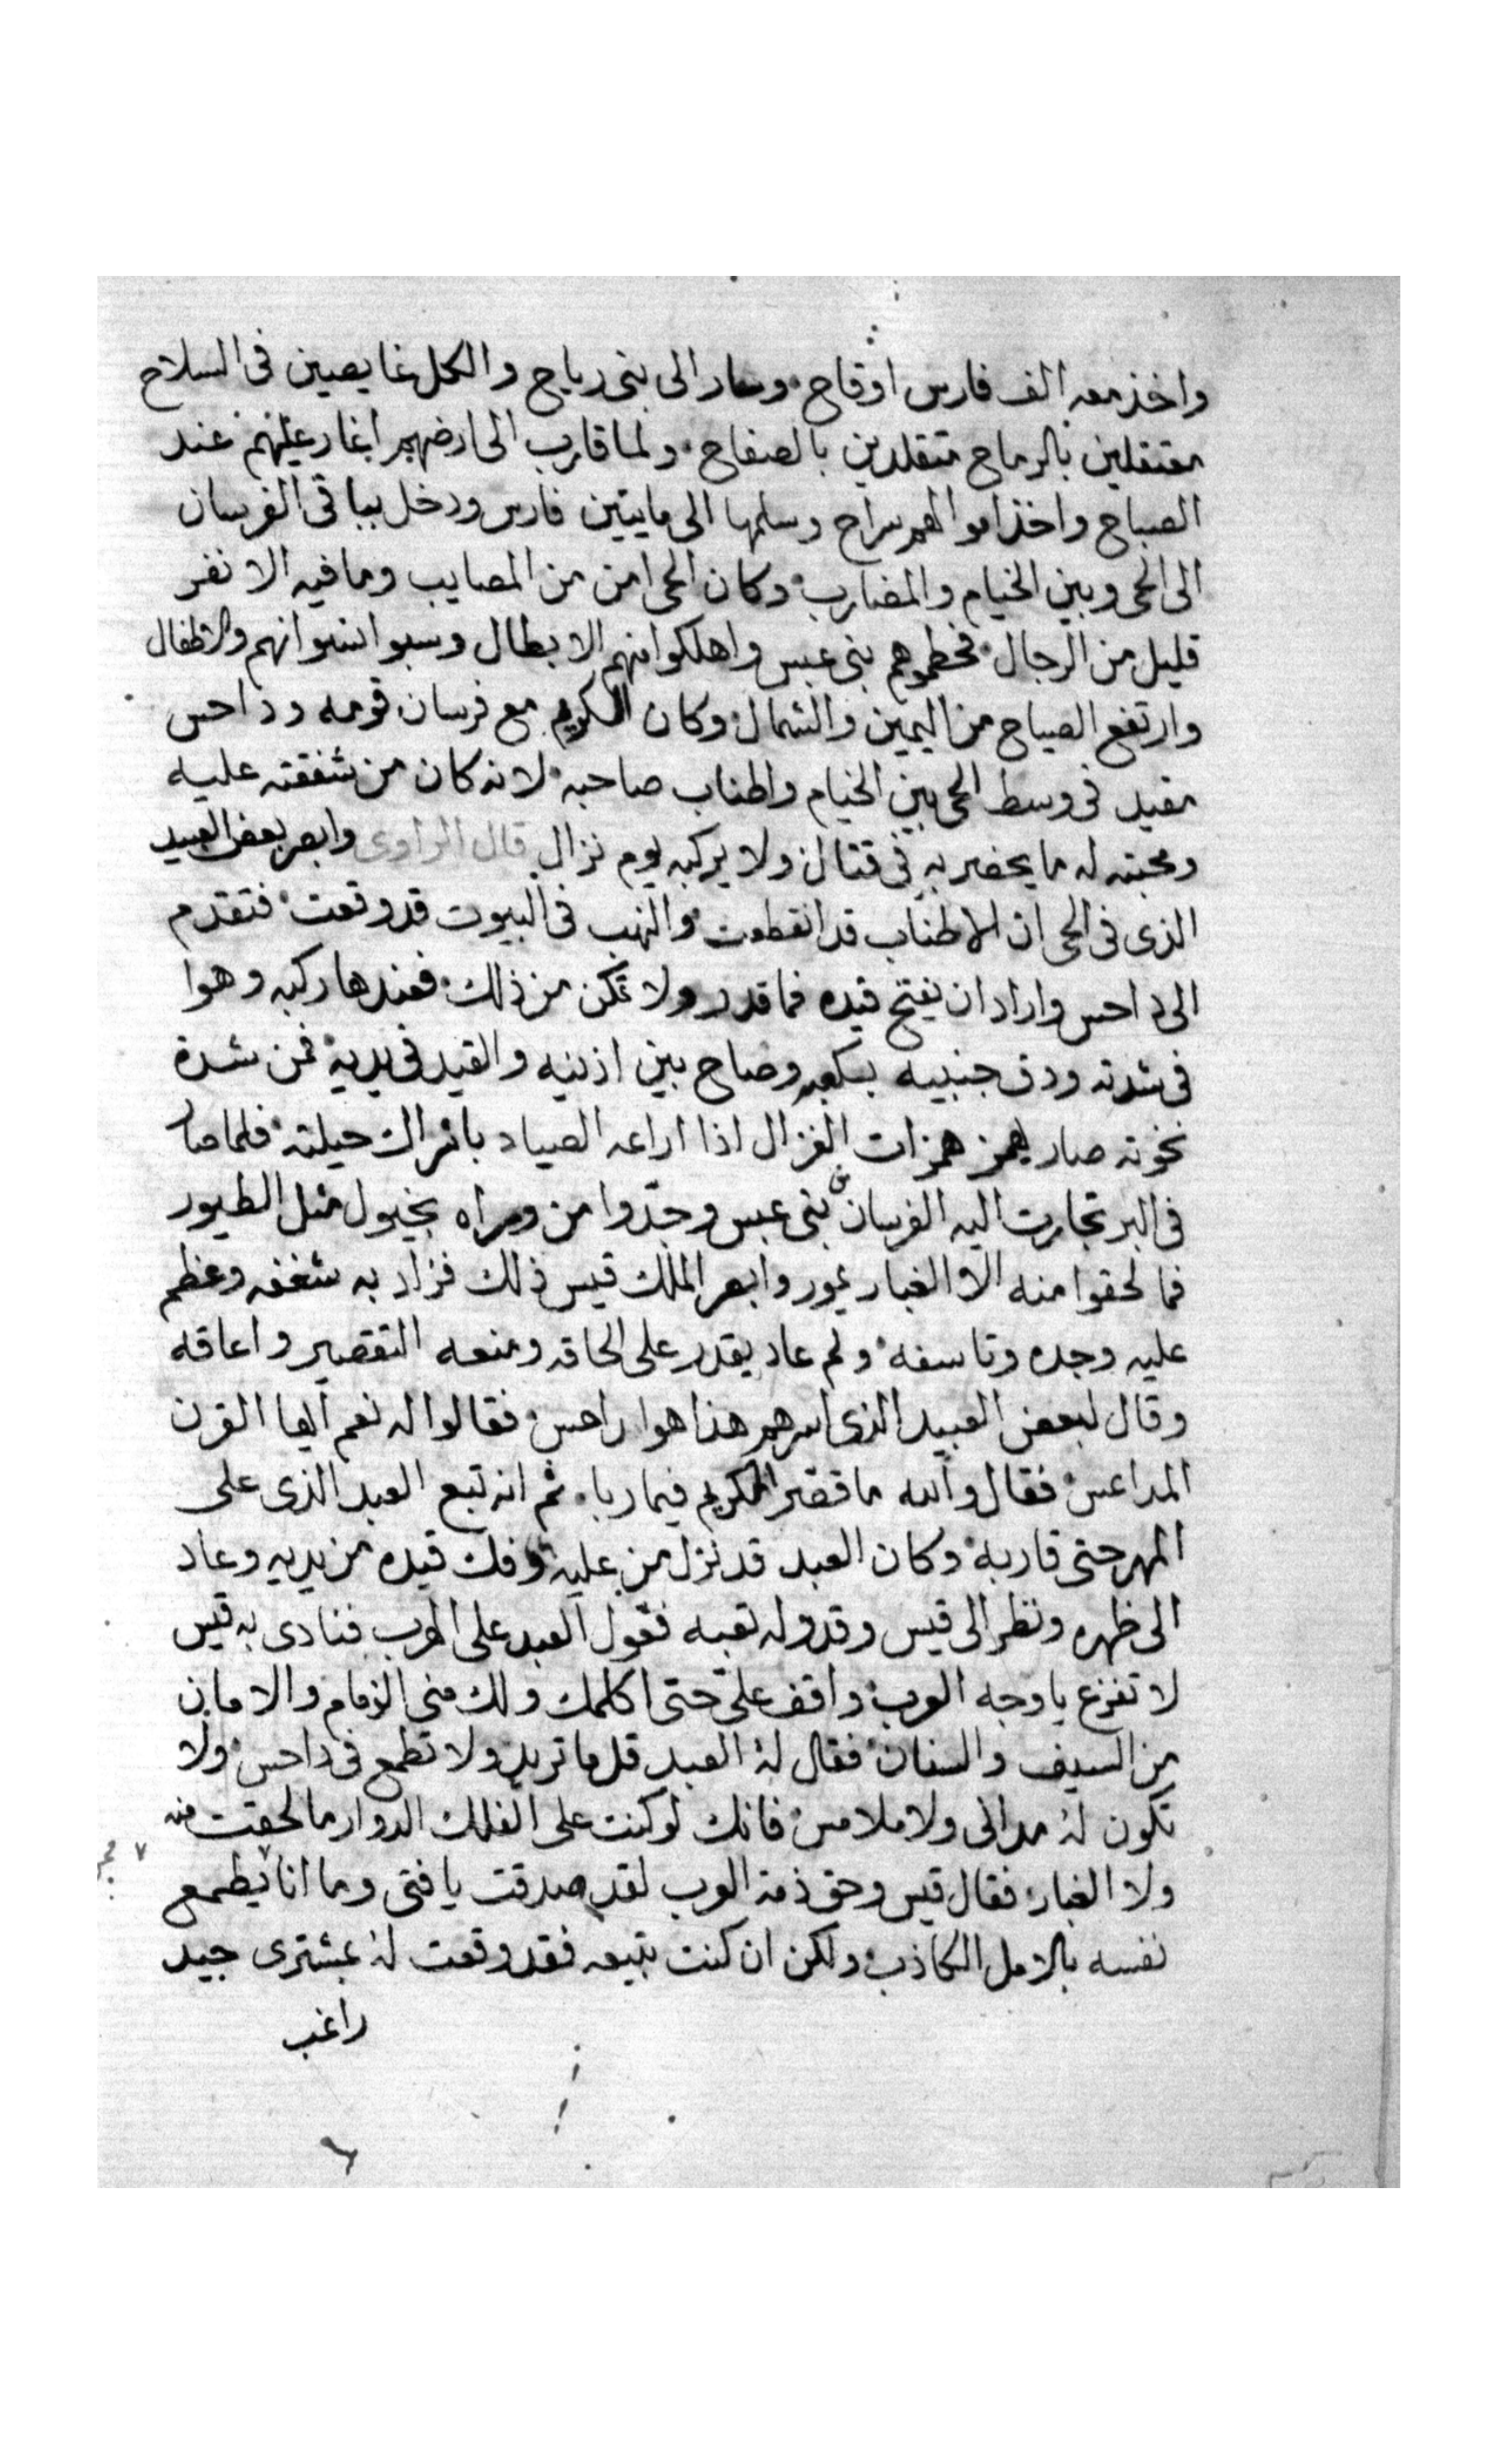 واخذ معه الف فارس اوقاح وسار الى بنى رياح والكل غايصين فى السلاح
معتقلين بالرماح متقلدين بالصفاح ولما قارب الى ارضهم اغار عليهم عند
الصباح واخذ اموالهم سراح وسلمها الى مايتين فارس ودخل بباقى الفرسان
الى الحى وبين الخيام والمضارب وكان الحى امن من المصايب وما فيه الا نفر
قليل من الرجال فحطموهم بنى عبس واهلكوا منهم الابطال وسبوا نسوانهم والاطفال
وارتفع الصياح من اليمين والشمال وكان الكريم مع فرسان قومه وداحس
مقيد فى وسط الحى بين الخيام واطناب صاحبه لانه كان من شفقته عليه
ومحبته له ما يحضر به فى قتال ولا يركبه يوم نزال قال الراوى وابصر بعض العبيد
الذى فى الحى ان الاطناب قد انقطعت والنهب فى البيوت قد وقعت فتقدم
الى داحس واراد ان يفتح قيده فما قدر ولا تمكن من ذلك فعندها ركبه وهوا
فى شدته ودق جنبيه بكعبه وصاح بين اذنيه والقيد فى يديه فمن شدة
نخوته صار يهمز همزات الغزال اذا اراعه الصياد باشراك حيلته فلما صار
فى البر تجارت اليه الفرسان من بنى عبس وجدّوا من وراه بخيول مثل الطيور
فما لحقوا منه الا الغبار يمور وابصر الملك قيس ذلك فزاد به شغفه وعظم
عليه وجده وتاسفه ولم عاد يقدر على لحاقه ومنعه التقصير واعاقه
وقال لبعض العبيد الذى اسرهم هذا هوا داحس فقالوا له نعم ايها القرن
المداعس فقال والله ما قصّر الكريم فيما ربا ثم انه تبع العبد الذى على
المهر حتى قاربه وكان العبد قد نزل من عليه وفك قيده من يديه وعاد
الى ظهره ونظر الى قيس وقد وله تعبه فعول العبد على الهرب فنادى به قيس
لا تفزع يا وجه العرب واقف علىّ حتى اكلمك ولك منى الزمام والامان
من السيف والسنان فقال له العبد قل ما تريد ولا تطمع فى داحس ولا
تكون له مدانى ولا ملامس فانك لو كنت على الفلك الدوار ما لحقت منه
ولا الغبار فقال قيس وحق ذمة العرب لقد صدقت يا فتى وما انا يطمع
نفسه بالامل الكاذب ولكن ان كنت تبيعه فقد وقعت له بمشترى جيد
راغب